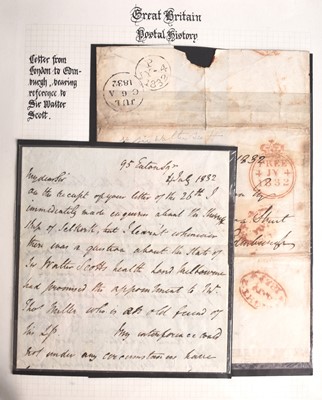 Great Britain
Postal History
Letter from
London to Edin-
burgh, bearing
reference to
Sir Walter
Scott.
JUL
1832
1832
FREE
JY
1832
95 Eaton Sqr
4 July 1832
My dear Sir
On the receipt of your letter of the 26th I
immediately made enquiries about the
of Selkirk, but I learnt whenever
there was a question about the State of
Sir Walter Scotts health Lord Melbourne
had promised the appointment to Mr
Thos who is an old friend of
his Lp My interference could
not under any circumstances have